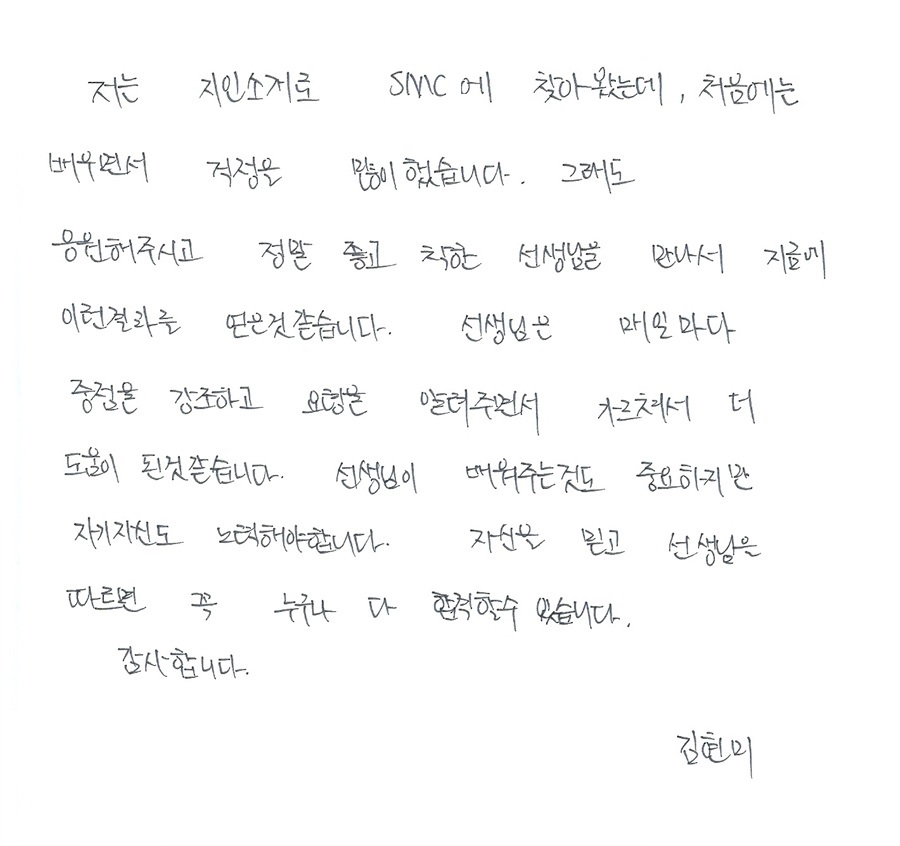 저는 지인소개로 SMC에 찾아왔는데, 처음에는
배우면서 걱정을 많이 했습니다. 그래도
응원해주시고 정말 좋고 착한 선생님을 만나서 지금에
이런결과를 얻은것 같습니다. 선생님은 매일마다
중점을 강조하고 요령을 알려주면서 가르쳐서 더
도움이 된것 같습니다. 선생님이 배워주는것도 중요하지만
자기자신도 노력해야합니다. 자신을 믿고 선생님을
따르면 꼭 누구나 다 합격할수 있습니다.
감사합니다.
김현미